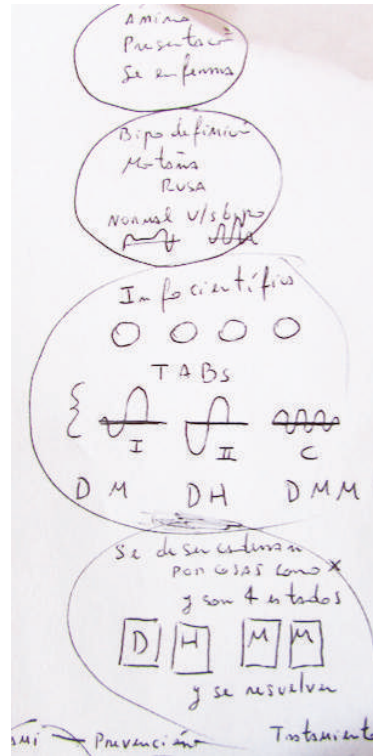 Ánimo
Presentació
Se enferma
Bipo definició
Motaña
RUSA
NORMAL V/S bipo
Info científico
TABs
I II C
DM DH DMM
Se desencadenan
POR COSAS como X
y son 4 estados
D H M M
y se resuelven
Prevención Tratamiento